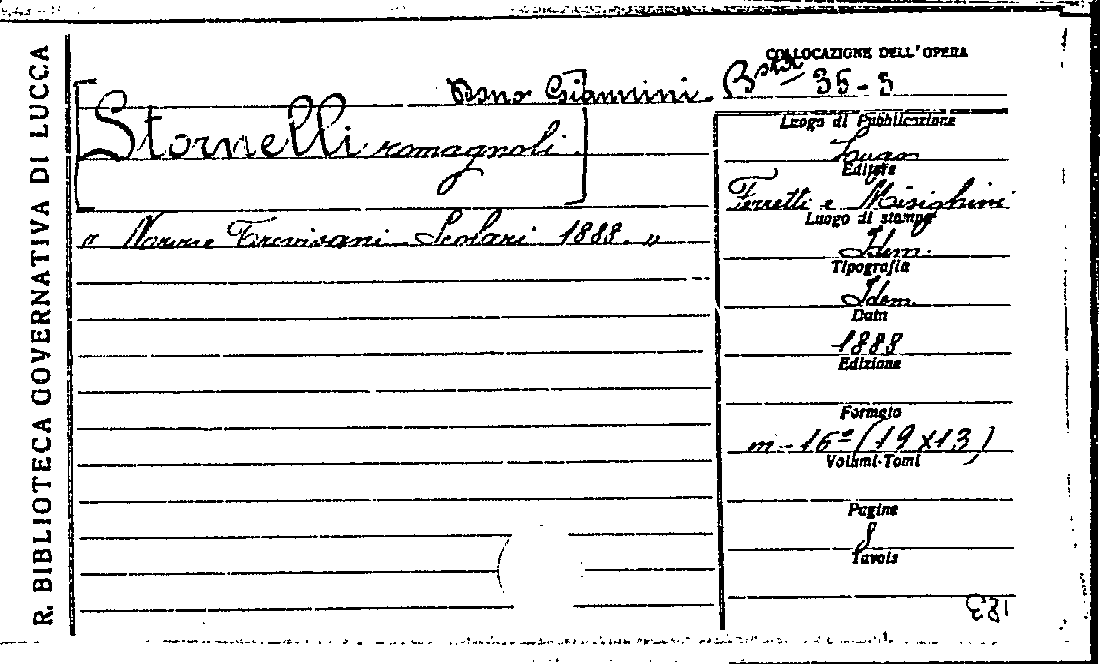 R. BIBLIOTECA GOVERNATIVA DI LUCCA
Dono Giannini.
[Stornelli romagnoli.]
" Nozze Trevisani Scolari 1888. "
COLLOCAZIONE DELL'OPERA
Bta 35-5
Luogo di Pubblicazione
Lugo
Editore
Ferretti e Misighini
Luogo di stampa
Idem.
Tipografia
Idem.
Data
1888
Edizione
Formato
m-16° (19x13)
Volumi-Tomi
Pagine
8
Tavole